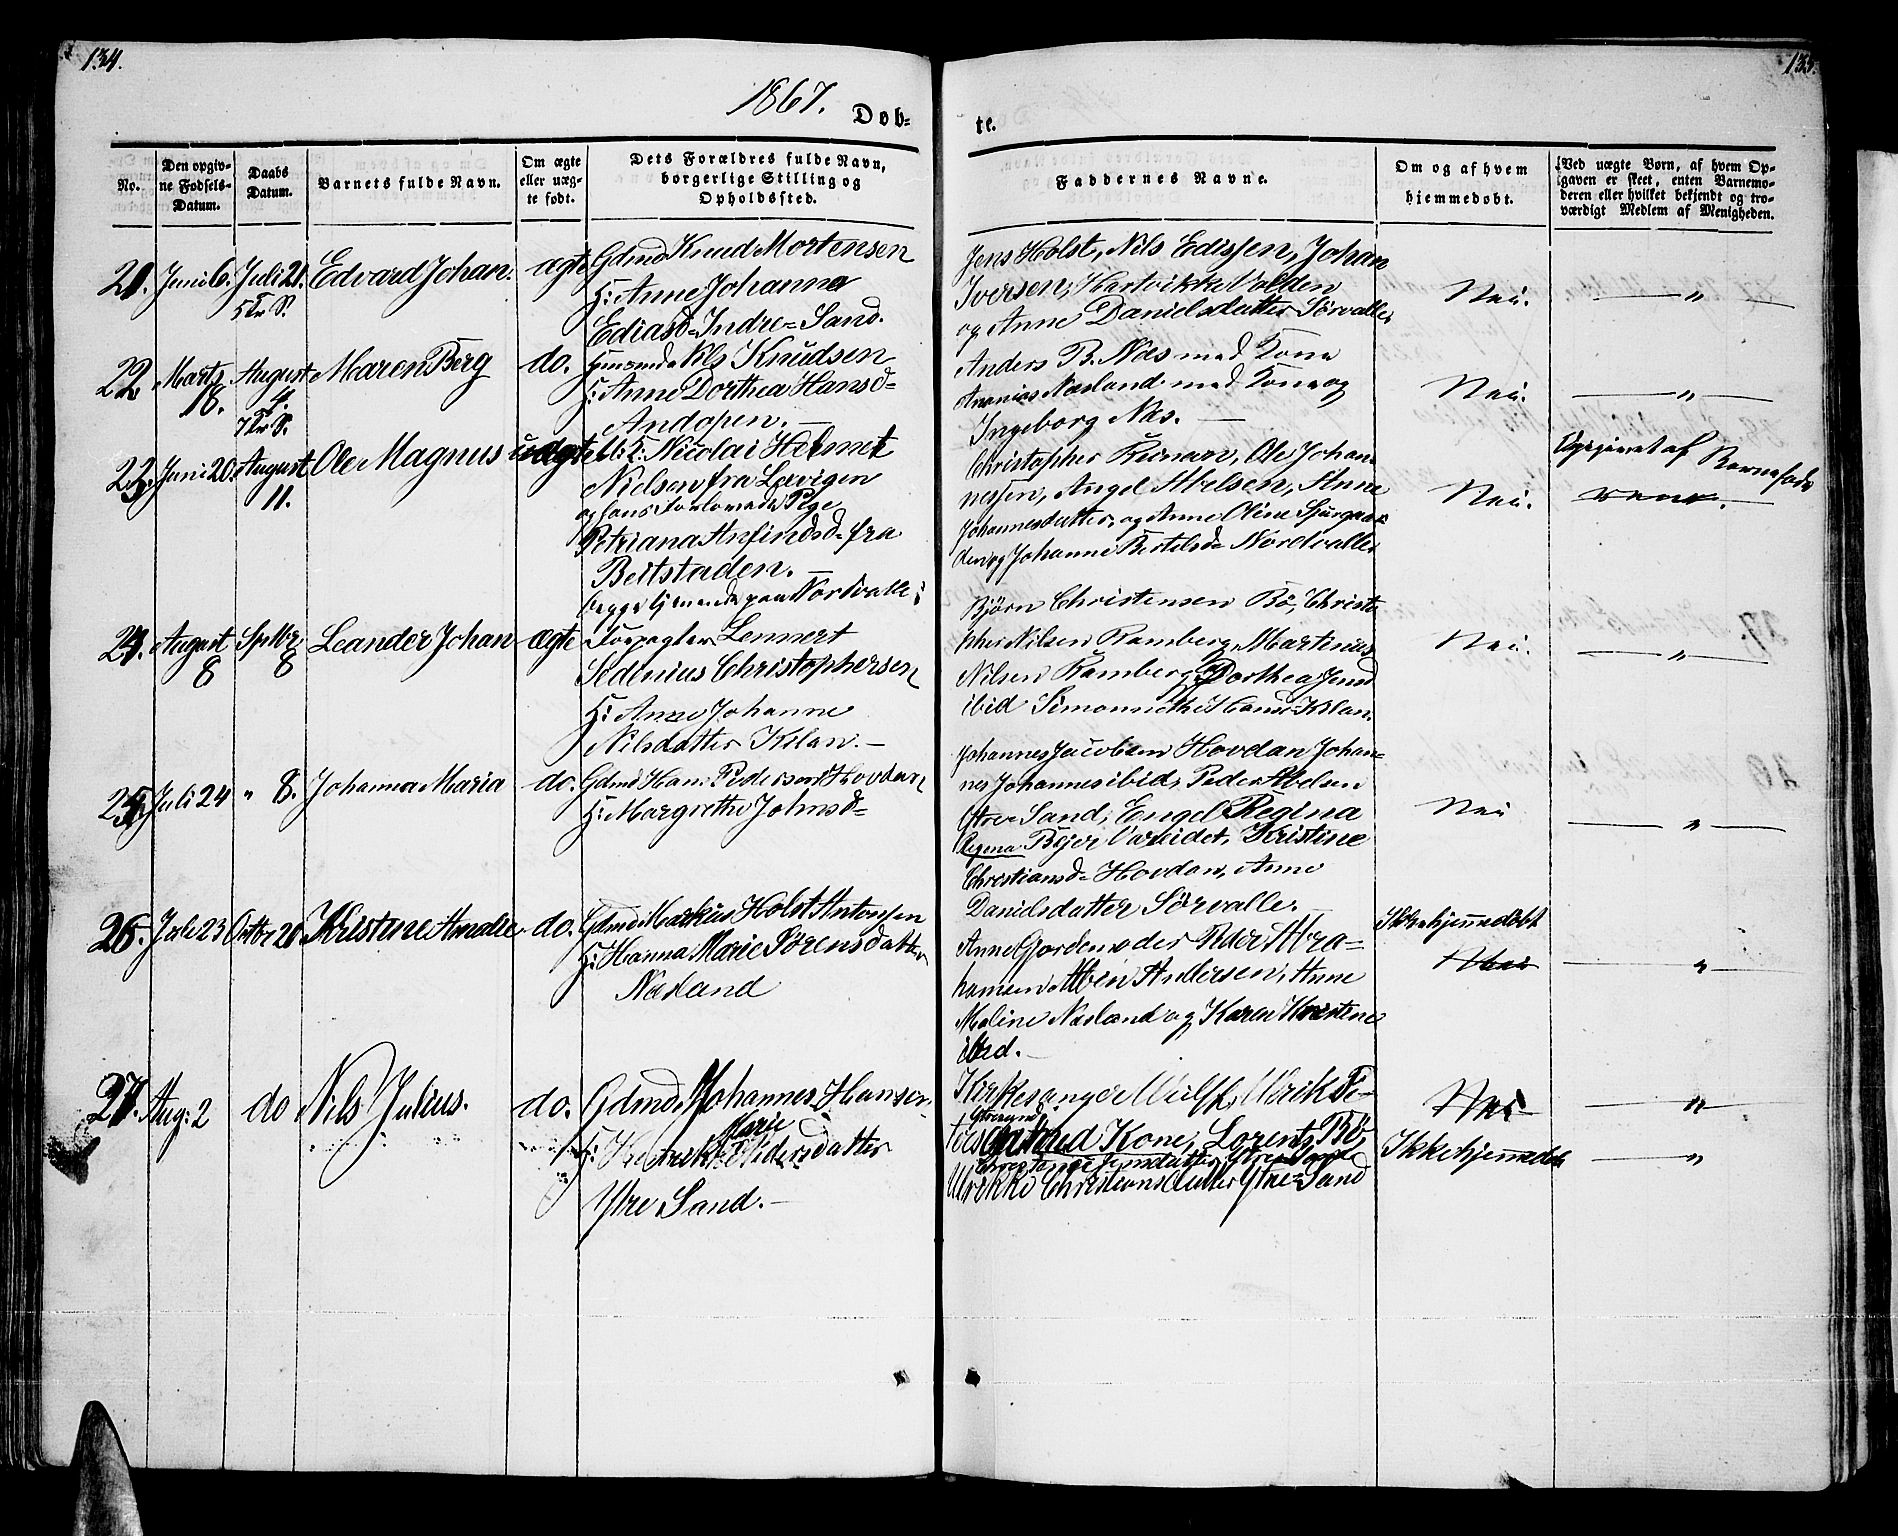 134.
135.
1867.
Døb-
te.
No.
Den opgiv-
ne Fødsels-
Datum.
Daabs
Datum.
Barnets fulde Navn.
Om ægte
eller uæg-
te født.
Dets Forældres fulde Navn,
borgerlige Stilling og
Opholdssted.
Faddernes Navne.
Om og af hvem
hjemmedøbt.
Ved uægte Børn, af hvem Op-
gaven er skeet, enten Barnemo-
deren eller hvilket bekjendt og tro-
værdigt Medlem af Menigheden.
21. Juni 6. Juli 21. Edvard Johan. ægte Gdmd Knud Mortensen
5 Tr. S. H: Anne Johanna
Ediasd= Indre=Sand.
Jens Holst, Nils Edissen, Johan
Iversen, Hartvikka Volden
og Anne Danielsdatter Sørvalle
Nei. — " —
22. Marts August Maren Berg do. Nils Knudsen
18. 4. H: Anne Dorthea Hansd=
7 Tr. S. Andopen. —
Anders B. Næs med Kone
Ananias Næsland med Kone og
Ingeborg Næs. —
Nei. — " —
23. Juni 20. August Ole Magnus uægte U: K: Nicolai Helmert
11. Nielsen fra Lovigen
og hans Forlovede Pige
Petriana Anfindsd= fra
Beitstaden. —
begge tjenende paa Nordvalle
Christopher Kunar, Ole Johan
nessen, Angel Abelsen, Anne
Johannesdatter, og Anne Oline
den og Johanne Bertelsd= Nordvalle
Nei. Opgivet af Barnefade
ren.
24. August Septbr Leander Johan ægte Forpagter Lennert
8 8 Sedenius Christophersen
H: Anne Johanne
Nilsdatter Kilan. —
Bjørn Christensen Bø, Christo
pher Nilsen Ramberg, Martinus
Nilsen Ramberg, Dorthea Jensd
ibid Simonnethe Hansd= Kilan.
Nei. — " —
25. Juli 24 " 8. Johanna Maria do. Gdmd Hans Pedersen Hovdan
H: Margrethe Johnsd=
Johannes Jacobsen Hovdan Johan-
nes Johannes ibid, Peder Abelsen
Ytre Sand, Engel Regina
Regina Bejer Vareidet, Kristine
Christiansd= Hovdan, Anne
Danielsdatter Sørvalle.
Nei — " —
26. Juli 23 Octbr 20 Kristine Amalie do. Gdmd Markus Holst Antonsen
H: Hanna Marie Sørensdatter
Næsland
Anne Gjordemoder Peder Abra=
hamsen Aben Andersen, Anne
Meline Næsland og Karen Kristine
ibid. —
Ikke hjemmedøbt
Nei — " —
27. Aug: 2 do Nils Julius. do. Gdmd. Johannes Hansen
Marie
H: Henrikke Pedersdatter
Ytre Sand. —
Kirkesanger Wulff, Ulrik
Kone, Lorents Bø,
Ulrikke Christiansdatter Ytre=Sand
Nei — " —
Ikke hjemmedøbt — " —